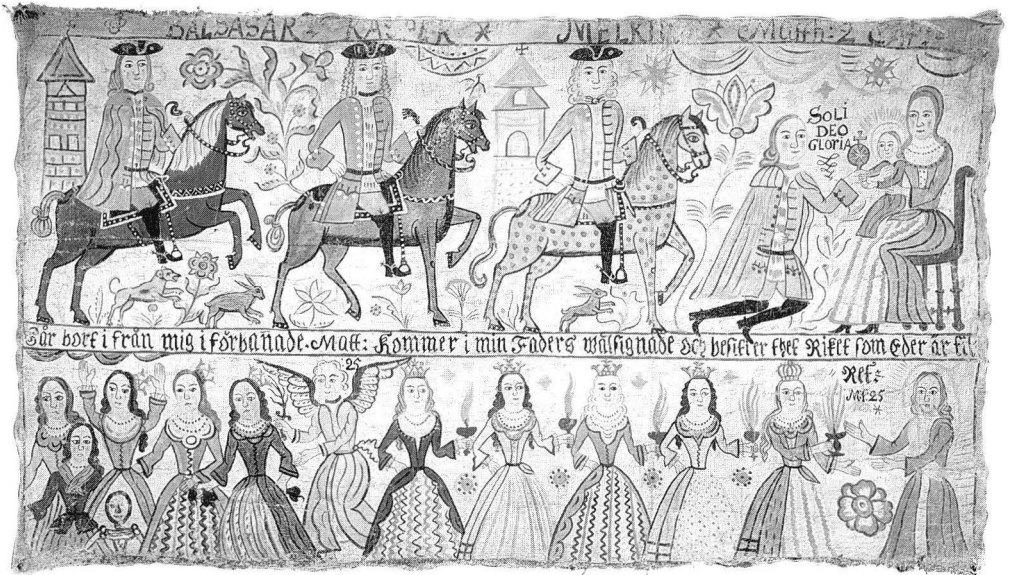 BALSASAR KASPER * MELKI * Matth: 2 CA
SOLI
DEO
GLORIA
Går bort i från mig i förbanade. Matt: Kommer i min Faders wälsignade och besitter thet Riket som Eder är til
25
Ret:
Mt 25
*